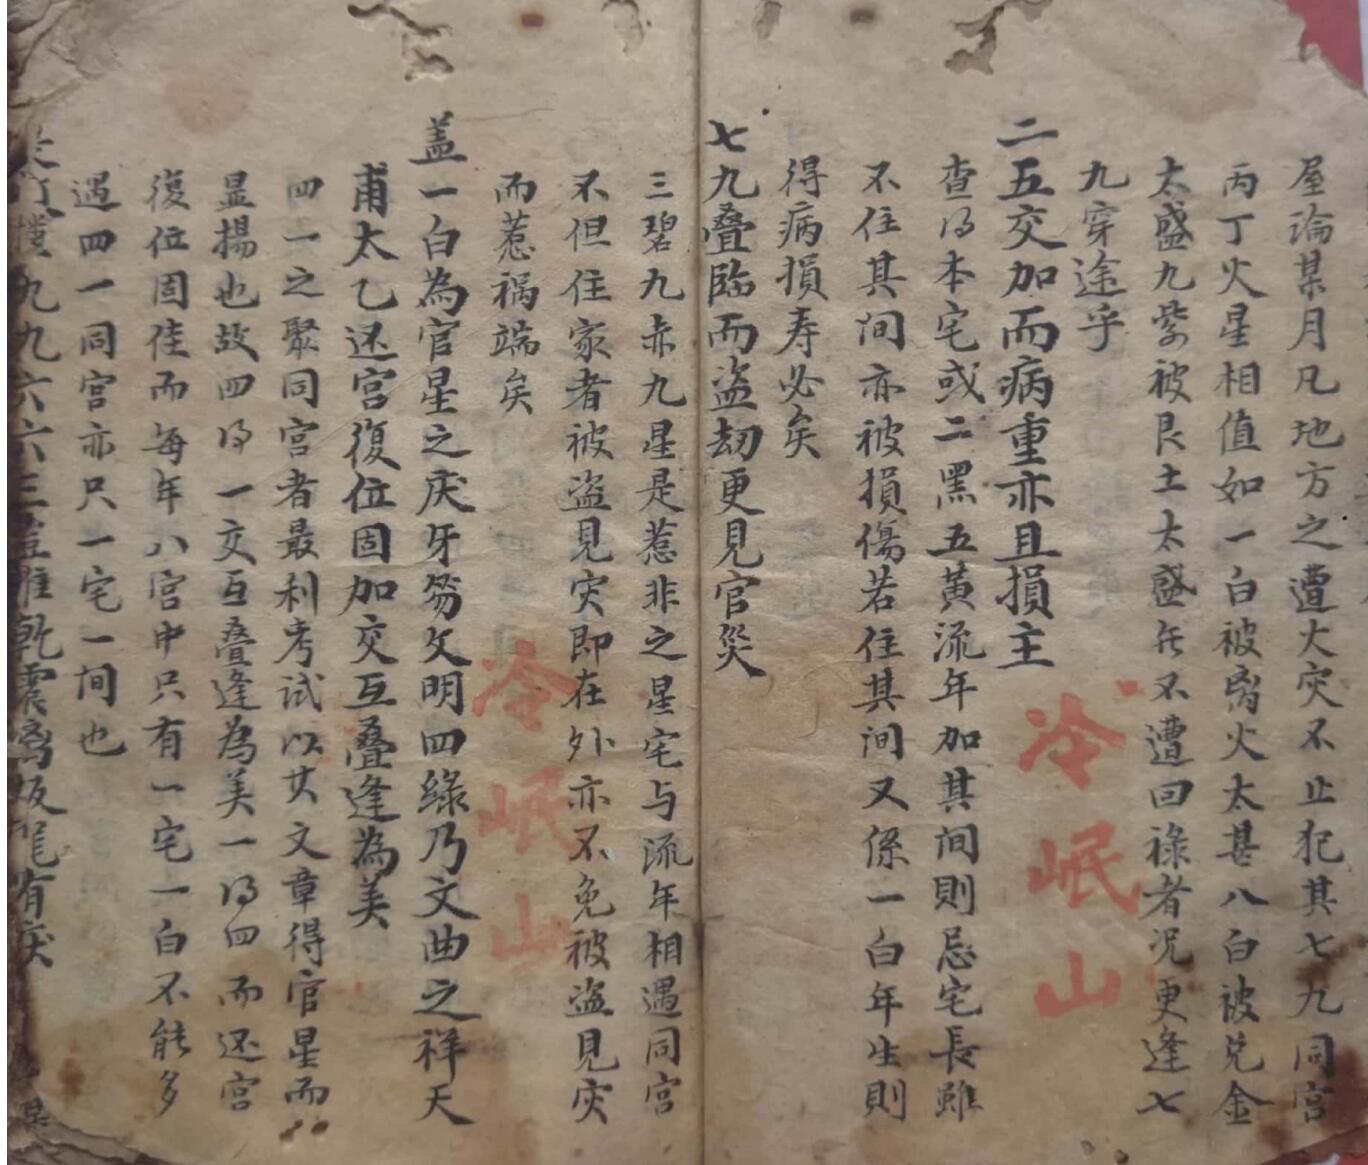 屋論某月凡地方之遭火灾不止犯其七九同宫
丙丁火星相值如一白被离火太甚八白被兑金
太盛九紫被艮土太盛无不遭回禄者况更逢七
九穿途乎
二五交加而病重亦且損主
查得本宅或二黑五黄流年加其间則忌宅長雖
不住其间亦被損傷若住其间又係一白年生則
得病損寿必矣
七九叠臨而盗劫更見官災
三碧九赤九星是惹非之星宅与流年相遇同宫
不但住家者被盗見灾即在外亦不免被盗見灾
而惹禍端矣
盖一白為官星之牙笏文明四綠乃文曲之祥天
甫太乙还宫復位固加交互叠逢為美
四一之聚同宫者最利考試以其文章得官星而
显揚也故四得一交互叠逢為美一得四而还宫
復位固佳而每年八宫中只有一宅一白不能多
遇四一同宫亦只一宅一间也
九九六六三乾震离坂尾有
冷岷山
冷岷山